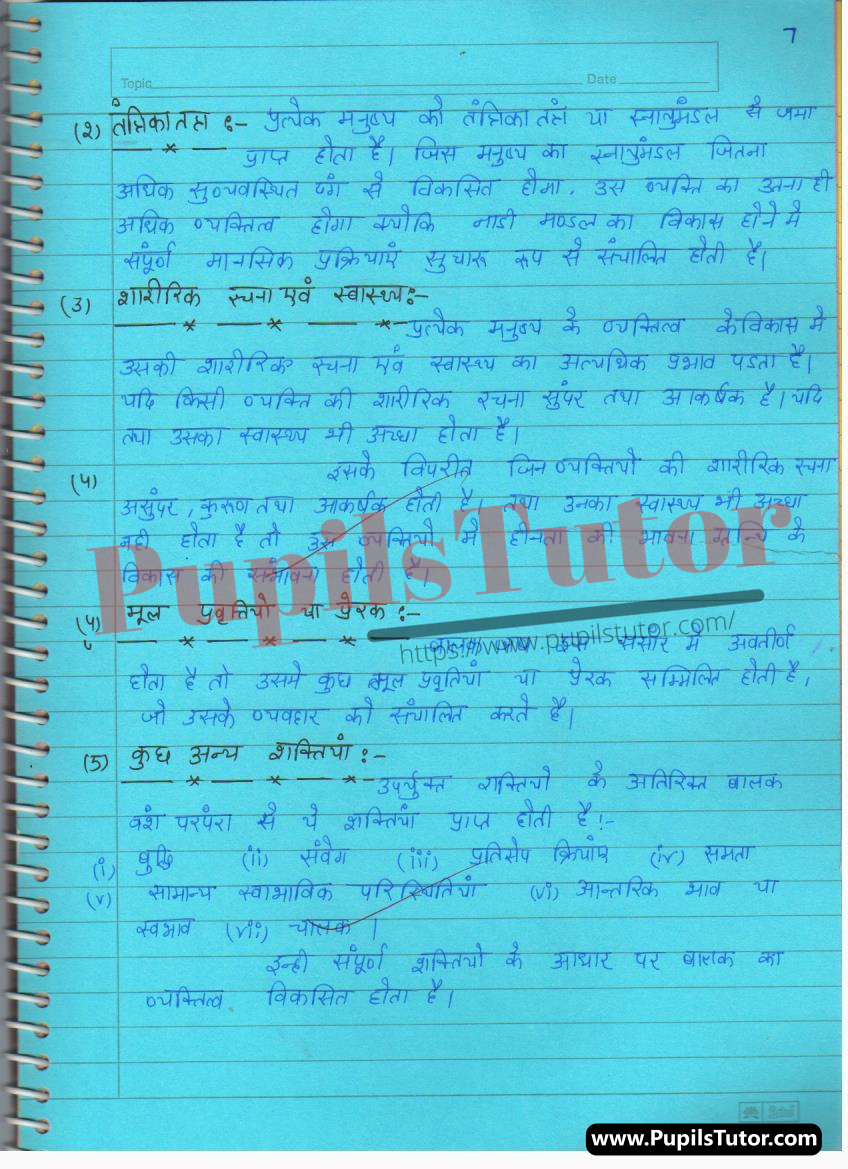 7
Topic Date
(2) तंत्रिका तन्त्र :- प्रत्येक मनुष्य को तंत्रिका तंत्र या स्नायुमंडल से जमा
प्राप्त होता है। जिस मनुष्य का स्नायुमंडल जितना
अधिक सुव्यवस्थित ढंग से विकसित होगा, उस व्यक्ति का उतना ही
अधिक व्यक्तित्व होगा क्योकि नाडी मण्डल का विकास होने मे
संपूर्ण मानसिक प्रक्रियाएं सुचारू रूप से संचालित होती है।
(3) शारीरिक रचना एवं स्वास्थ्य:-
प्रत्येक मनुष्य के व्यक्तित्व के विकास मे
उसकी शारीरिक रचना एवं स्वास्थ्य का अत्यधिक प्रभाव पडता है।
यदि किसी व्यक्ति की शारीरिक रचना सुंदर तथा आकर्षक है। यदि
तथा उसका स्वास्थ्य भी अच्छा होता है।
(4) इसके विपरीत जिन व्यक्तियो की शारीरिक रचना
असुंदर, कुरूप तथा आकर्षक होती है। तथा उनका स्वास्थ्य भी अच्छा
नही होता है तो उस व्यक्तियो मे हीनता की भावना ग्रन्थि के
विकास की संभावना होती है।
(4) मूल प्रवृत्तियो या प्रेरक :-
बालक जब इस संसार मे अवतीर्ण
होता है तो उसमे कुछ मूल प्रवृतियां या प्रेरक सम्मिलित होती है,
जो उसके व्यवहार को संचालित करते है।
(5) कुछ अन्य शक्तियां :-
उपर्युक्त शक्तियो के अतिरिक्त बालक
वंश परंपरा से ये शक्तियां प्राप्त होती है!-
(i) बुद्धि (ii) संवेग (iii) प्रतिक्षेप क्रियांए (iv) क्षमता
(v) सामान्य स्वाभाविक परिस्थितियां (vi) आन्तरिक भाव या
स्वभाव (vii) चालक।
इन्ही संपूर्ण शक्तियो के आधार पर बालक का
व्यक्तित्व विकसित होता है।
PupilsTutor
https://www.pupilstutor.com/
www.PupilsTutor.com